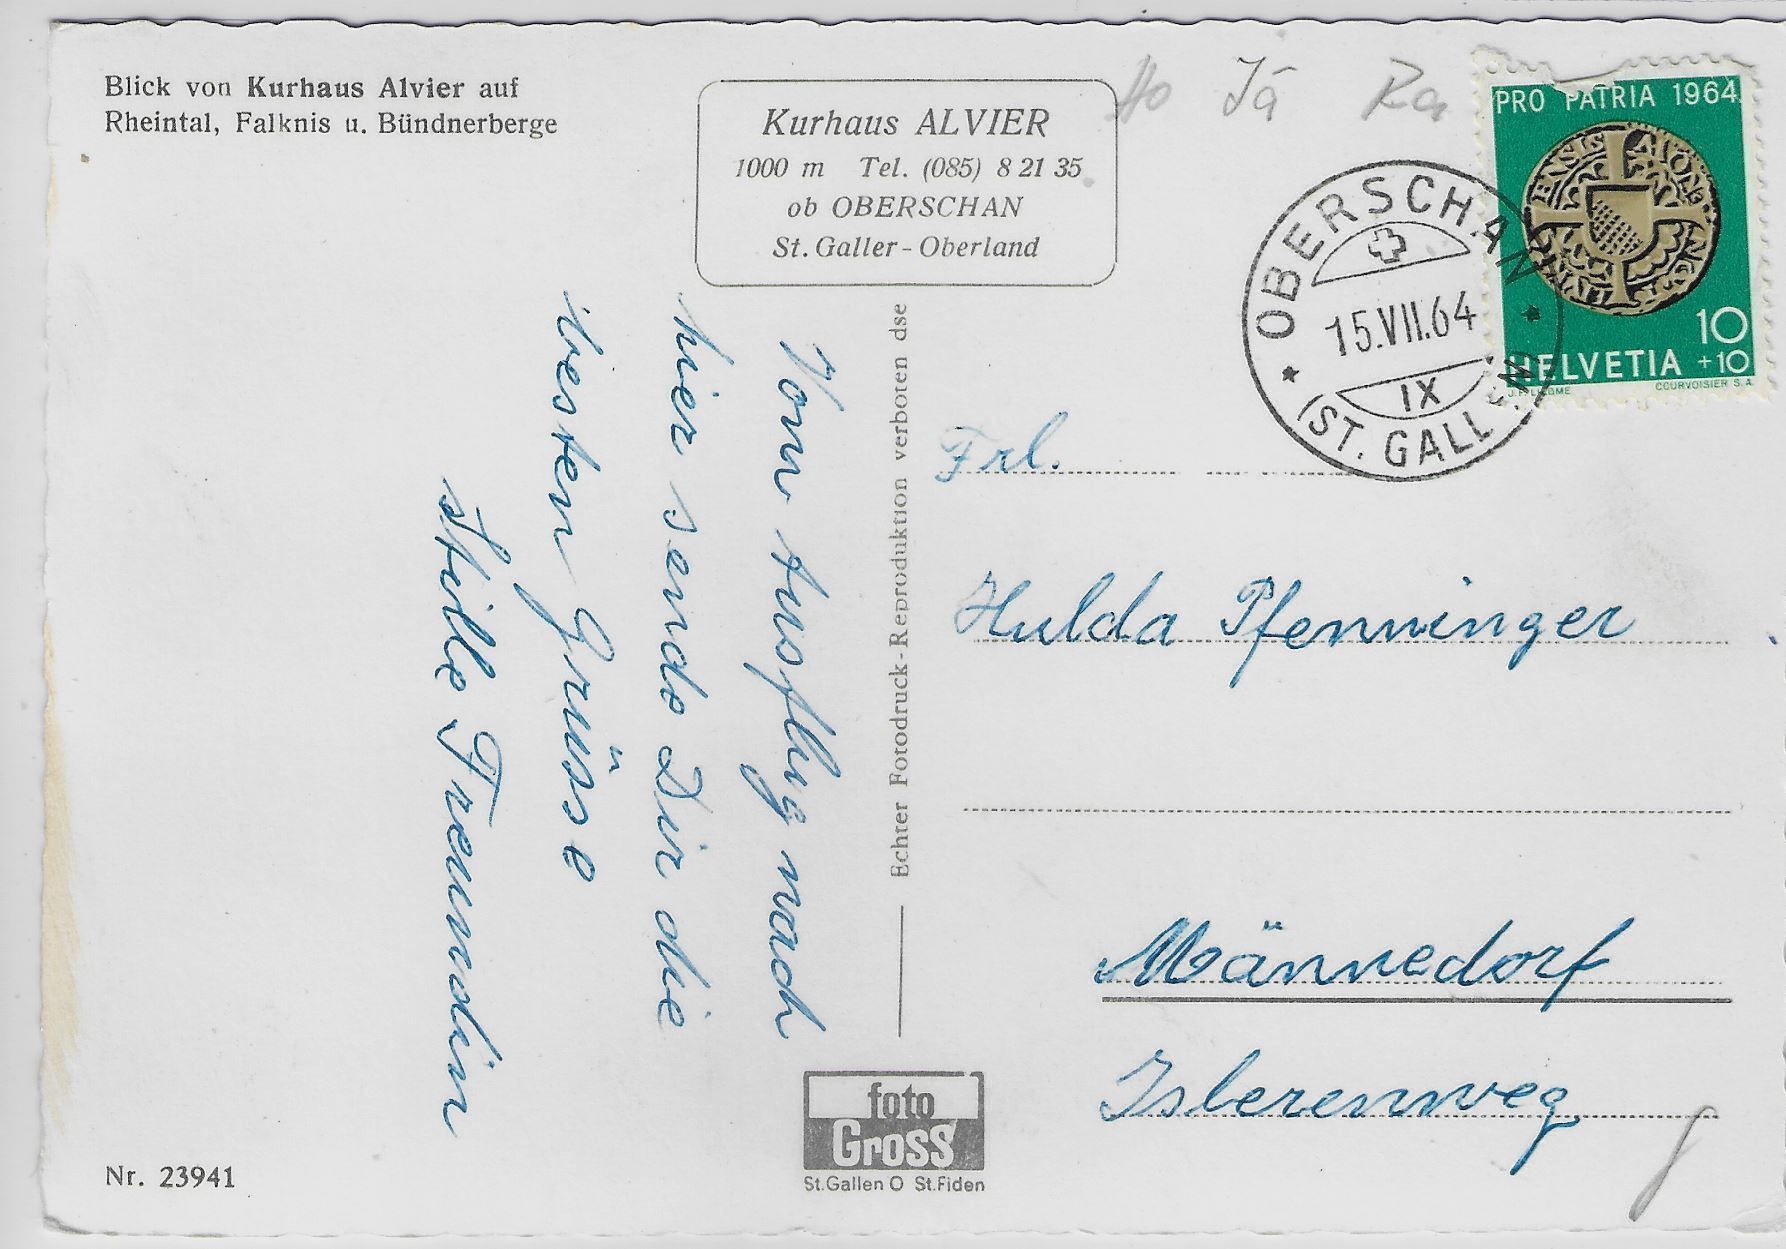 Blick von Kurhaus Alvier auf
Rheintal, Falknis u. Bündnerberge
Kurhaus ALVIER
1000 m Tel. (085) 8 21 35
ob OBERSCHAN
St. Galler-Oberland
Ho Jä Ra
PRO PATRIA 1964
10
HELVETIA +10
COURVOISIER S.A.
OBERSCHAN
15.VII.64
IX
(ST. GALLEN)
Vom Ausflug nach
hier sende Dir die
besten Grüsse
Stille Freundin
Echter Fotodruck-Reproduktion verboten dse
Frl.
Hulda Pfenninger
Männedorf
Islerenweg
foto
Gross
St.Gallen O St.Fiden
Nr. 23941